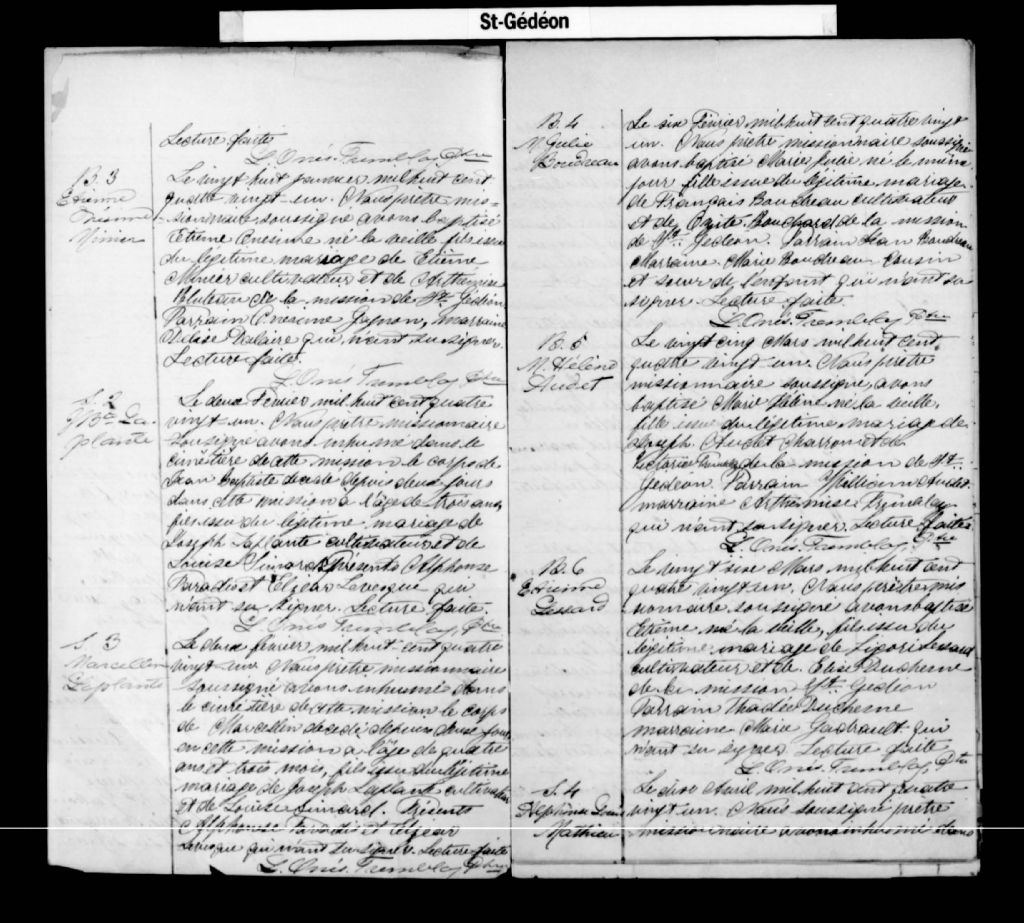 St-Gédéon
Lecture faite
L. Onés. Tremblay, Ptre
B. 3
Etienne
Onesime
Minier
Le vingt huit janvier mil huit cent
quatre vingt-un. Nous prêtre mis-
sionnaire soussigné avons baptisé
Etienne Onesime né la veille fils issu
du légitime mariage de Etiène
Minier cultivateur et de Arthémise
de la mission de St. Gedeon
Parrain Onesime Gagnon, marraine
Dalaire qui n'ont su signer.
Lecture faite.
L. Onés. Tremblay, Ptre
S. 2
J Bte La-
plante
Le deux Février mil huit cent quatre
vingt-un. Nous prêtre missionnaire
soussigné avons inhumé dans le
cimetière de cette mission le corps de
Jean Baptiste décédé depuis deux jours
dans cette mission à l'âge de trois ans,
fils issu du légitime mariage de
Joseph Laplante cultivateur et de
Louise Simard. Présents Alphonse
Paradis et Elzéar Levesque qui
n'ont su signer. Lecture faite.
L. Onés. Tremblay, Ptre
S. 3
Marcellin
Laplante
Le deux février, mil huit cent quatre
vingt-un Nous prêtre missionnaire
soussigné avons inhumé dans
le cimetière de cette mission le corps
de Marcellin décédé depuis deux jours
en cette mission à l'âge de quatre
ans et trois mois, fils issu du légitime
mariage de Joseph Laplante cultivateur
et de Louise Simard. Présents
Alphonse Paradis et Elzear
Levesque qui n'ont su signer. Lecture faite
L. Onés. Tremblay, Ptre
B. 4
M Julie
Boudreau
Le six Février mil huit cent quatre vingt
un. Nous prêtre missionnaire soussigné
avons baptisé Marie Julie né le même
jour fille issue du légitime mariage
de Français Boudreau cultivateur
et de Bouchard de la mission
de St. Gedeon. Parrain Jean Boudreau
Marraine Marie Boudreau cousin
et soeur de l'enfant qui n'ont su
signer. Lecture faite.
L. Onés. Tremblay, Ptre
B. 5
M. Hélène
Audet
Le vingt cinq Mars mil huit cent
quatre vingt-un. Nous prêtre
missionnaire soussigné, avons
baptisé Marie Hélène né la veille,
fille issue du légitime mariage de
Joseph Audet Charron et de
de la mission de St.
Gedeon. Parrain William Audet
marraine Arthémise Tremblay
qui n'ont su signer. Lecture faite
L. Onés. Tremblay, Ptre
B. 6
Etienne
Lessard
Le vingt six Mars mil huit cent
quatre vingt-un. Nous prêtre mis
ionnaire, soussigné avons baptisé
Etienne né la veille, fils issu du
légitime mariage de Ligori Lessard
cultivateur et de Elise Duchesne
de la mission St. Gedeon
Parrain Thadée Duchesne
marraine Marie Gadrault qui
n'ont su signer Lecture faite
L. Onés. Tremblay, Ptre
S. 4
Alphonse
Mathieu
Le dix Avril mil huit cent quatre
vingt un. Nous soussigné prêtre
missionnaire avons inhumé dans